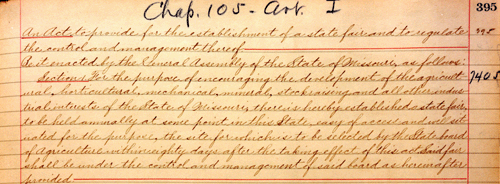 Chap. 105 - Art. I
395
An Act to provide for the establishment of a state fair and to regulate
395
the control and management thereof
Be it enacted by the General Assembly of the State of Missouri, as follows:
Section 1. For the purpose of encouraging the development of the agricult
7405
ural, horticultural, mechanical, mineral, stock raising and all other indus-
trial interests of the State of Missouri, there is hereby established a state fair,
to be held annually at some point in this State, easy of access and well sit
uated for the purpose, the site for which is to be selected by the State board
of Agriculture within eighty days after the taking effect of this act. Said fair
shall be under the control and management of said board as hereinafter
provided.